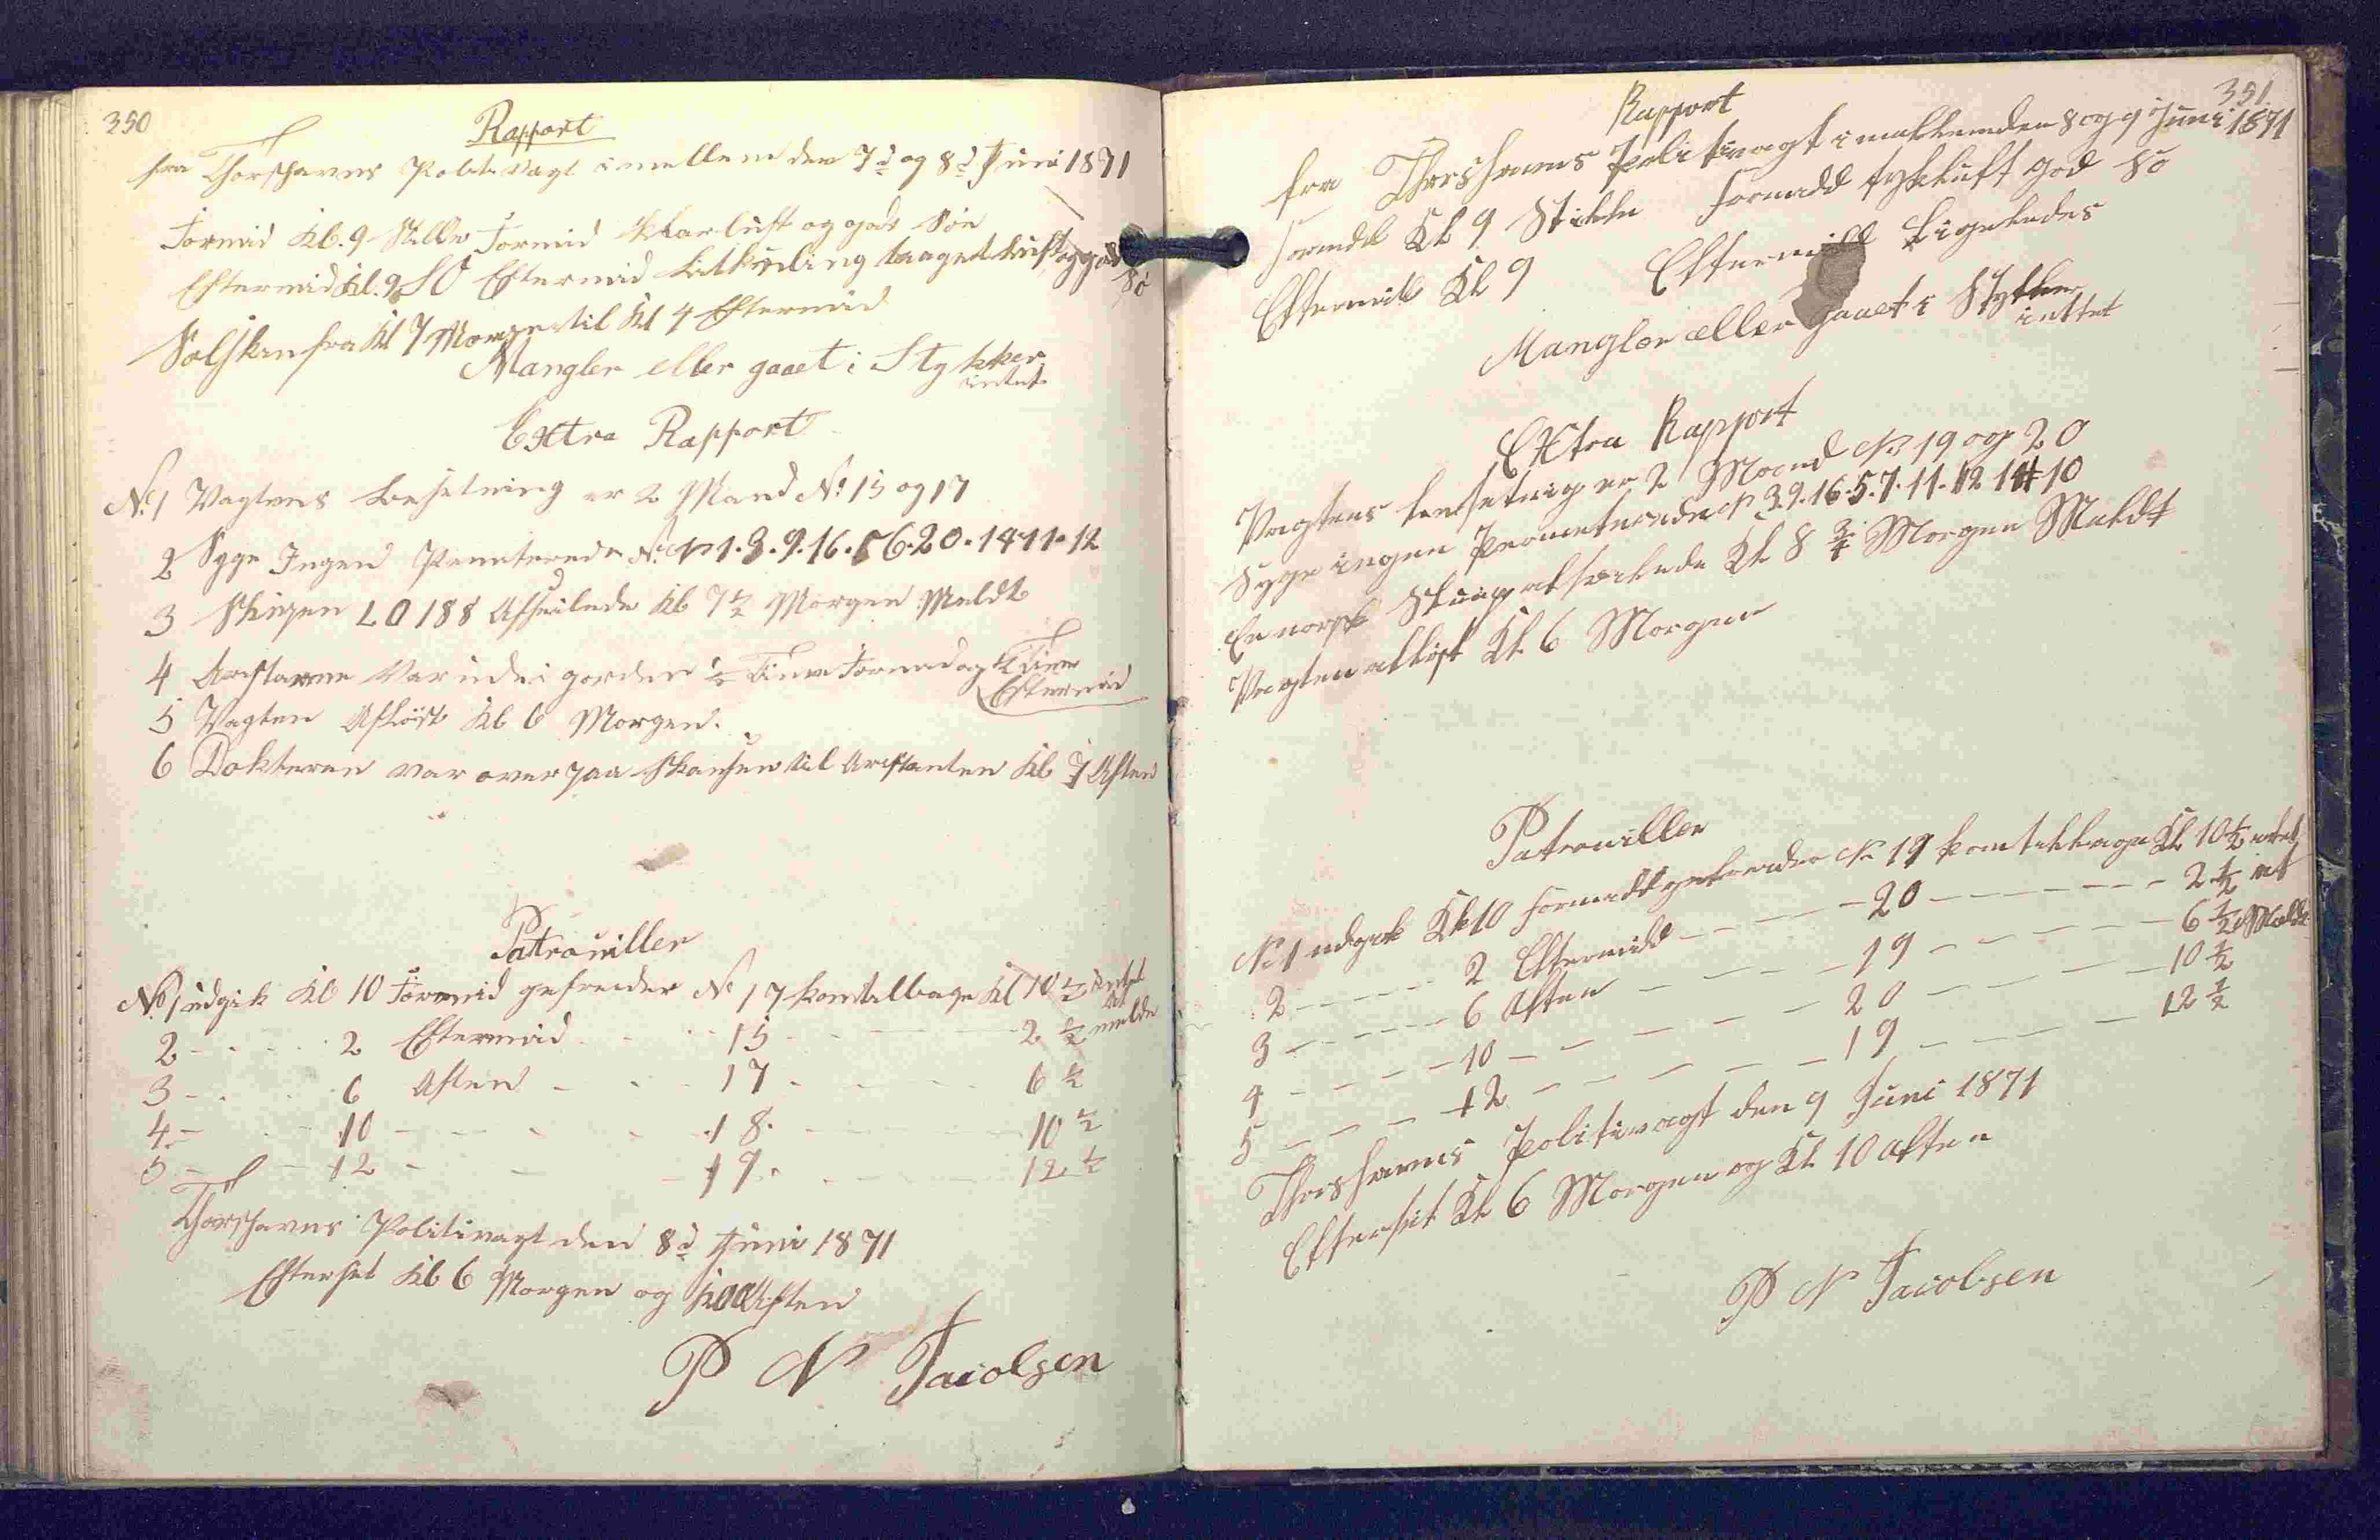 350
Rapport
fra Thorshavns Politivagt imellem den 7d og 8d Juni 1871
Formid Kl. 9 Stille Formid klar luft og gods Søe
Eftermid Kl. 9 SO Eftermid Litkuling taaget luft og god
Sø
Solsken fra Kl 7 Morgen til Kl 4 Eftermid
Mangler eller gaaet i Stykker
intet
Extra Rapport
No 1 Vagtens besetning er 2 Mand No 15 og 17
2 Syge Ingen Permiterede No 1. 3. 9. 16. 5 6. 20. 14. 11. 12
3 Skipen LO 188 Afseilede Kl 7 1/2 Morgen Meldt
4 Arestanne Var ude i gorden 1/2 Time Formid og Time
Eftermid
5 Vagten Afløst Kl 6 Morgen.
6 Dokteren var over paa Skansen til Arestanten Kl 7 Aften
Patrouiller
No 1 udgik Kl 10 Formid gefreider No 17 kom tilbage Kl 10 1/2 intet
at
2 - - 2 Eftermid - - 15 - - 2 1/2 melde
3 - - 6 Aften - - 17 - - 6 1/2
4 - - 10 - - 18. - - 10 1/2
5 - - 12 - - 19. - - 12 1/2
Thorshavns Politivagt den 8d Juni 1871
Efterset Kl 6 Morgen og Aften
P N Jacobsen
351
Rapport
fra Thorshavns Politivagt imellem den 8 og 9 Juni 1871
Formidd Kl 9 Stille Formidd tyk luft god Sø
Eftermid Kl 9 Eftermidd Ligeledes
Mangler eller gaaet i Stykker
inttet
Extra Rapport
Vagtens besetnig er 2 Mand No 19 og 20
Syge ingen Permeterede No 3. 9. 16. 5. 7. 11. 12 14 10
En norsk Slup afseilede Kl 8 3/4 Morgen Meldt
Vagten afløst Kl 6 Morgen
Patrouiller
No 1 udgik Kl 10 Formidd gefreider No 19 kom tilbage Kl 10 1/2 intet
2 - - 2 Eftermidd - - 20 - - 2 1/2 at
3 - - 6 Aften - - 19 - - 6 1/2 Melde
4 - - 10 - - 20 - - 10 1/2
5 - - 12 - - 19 - - 12 1/2
Thorshavns Politivagt den 9 Juni 1871
Efterset Kl 6 Morgen og Kl 10 Aften
P N Jacobsen